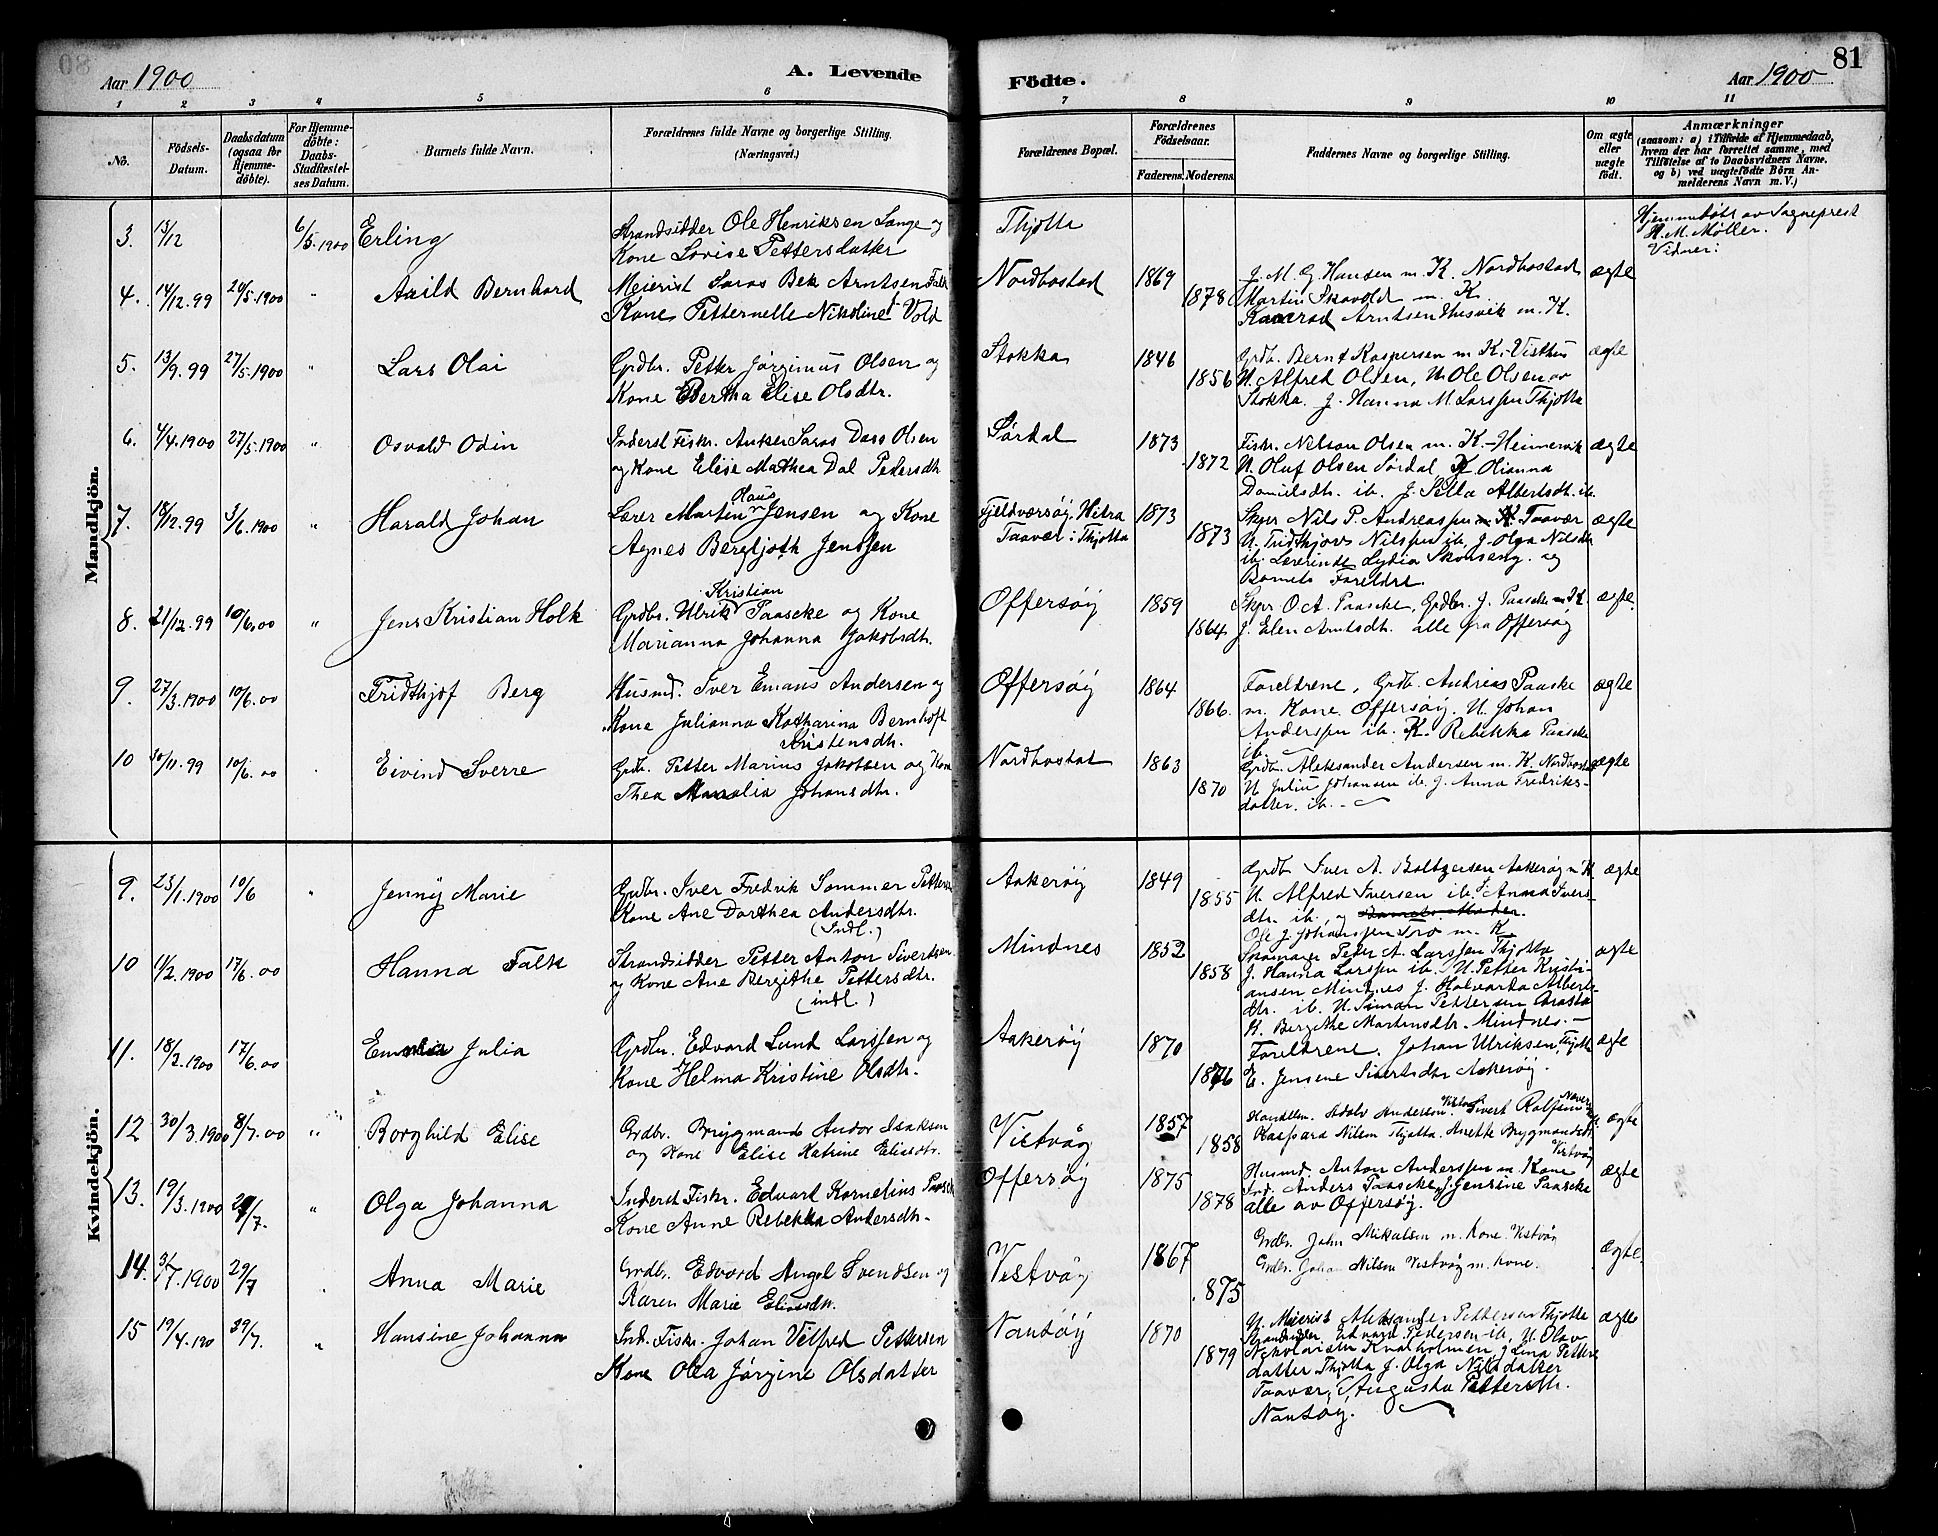 80
Aar 1900
A. Levende
Födte.
Aar 1900
81
1 2 3 4 5 6 7 8 9 10 11
No.
Födsels-Datum.
Daabsdatum (ogsaa for Hjemme-döbte).
For Hjemme-döbte: Daabs-Stadfæstel-ses Datum.
Barnets fulde Navn.
Forældrenes fulde Navne og borgerlige Stilling. (Næringsvei.)
Forældrenes Bopæl.
Forældrenes Födselsaar.
Faderens. Moderens.
Faddernes Navne og borgerlige Stilling.
Om ægte eller uægte födt.
Anmærkninger
(saasom: a) i Tilfælde af Hjemmedaab,
hvem der har forrettet samme, med
Tilföielse af to Daabsvidners Navne,
og b) ved uægtefödte Börn An-
melderens Navn m. V.)
Mandkjön.
3. 13/12 6/5.1900 Erling
Strandsidder Ole Henriksen Lange og
Kone Lovise Pettersdatter
Thjøtta
Hjemmedøbt av Sogneprest
H. M. Møller.
Vidner:
4. 14/12.99 20/5.1900 " Arild Bernhard
Meierist Saras Bek Arntsen Falk
Kone Petternelle Nikoline Vold
Nordbostad 1869 1878
J. M. G. Hansen m. K. Nordbostad
Martin Skavold m. K.
Konrad Arntsen Husvik m. K.
ægte
5. 13/9.99 27/5.1900 " Lars Olai
Grdbr. Petter Jørginus Olsen og
Kone Bertha Elise Olsdtr.
Stokka 1846 1856
Grdb. Bernt Kaspersen m K. Visthus
U. Alfred Olsen, U. Ole Olsen av
Stokka. J. Hanna M. Larssen Thjøtta
ægte
6. 4/4.1900 27/5.1900 " Osvald Odin
Inderst Fiskr. Anker Saras Dass Olsen
og Kone Elise Mathea Dal Petersdtr
Sørdal 1873 1872
Fiskr. Nelson Olsen m. K.
U. Oluf Olsen Sørdal, K Olianna
Danielsdtr. ib. J. Albertsdtr. ib.
ægte
7. 18/12.99 3/6.1900 " Harald Johan
Lærer Morten Claus Jensen og Kone
Agnes Bergljoth Jenssen
Fjeldværsøy, Hitra
Taavær i Thjøtta
1873 1873
Skpr Nils P. Andreassen m K Taavær
U. Fridthjovs Nilssen ib. J. Olga Nilsdtr
ib. Lærerinde Lydia Skonseng. og
Barnets Foreldre.
ægte
8. 21/12.99 10/6.00 " Jens Kristian Holk
Grdbr. Ulrik Kristian Paascke og Kone
Marianna Johanna Jakobsdtr.
Offersøy 1859 1864
Skpr O. A. Paascke, Grdbr. J. Paascke m K.
J. Elen Arntsdtr. alle fra Offersøy
ægte.
9. 27/3.1900 10/6.00 Fridthjof Berg
Husmd. Iver Emaus Andersen og
Kone Julianna Katharina Bernhoft
Kristensdtr.
Offersøy 1864 1866.
Foreldrene, Grdb. Andreas Paaske
m. Kone. Offersøy. U. Johan
Anderssen ib. K. Rebekka Paaske
ib.
ægte
10 30/11.99 10/6.00 Eivind Sverre
Grdb. Petter Marius Jakobsen og Kone
Thea Johansdtr.
Nordbostad 1863 1870
Grdb. Aleksander Andersen m. K. Nordbostad
U Julius Johansen ib. J. Anna Fredriks-
datter. ib.
ægte
Kvindekjön.
9. 23/1.1900 10/6 " Jenny Marie
Grdbr. Iver Fredrik Sommer Pettersen
Kone Ane Dorthea Andersdtr.
(Indl.)
Aakerøy 1849 1855
Grdb Iver A. Boltzersen Aakerøy m K
U. Alfred Iversen ib. J. Anna Ivers-
dtr. ib. og Barnets Moder.
Ole J. Johanssen Tro m. K
ægte
10 11/2.1900 17/6.00 Hanna Falk
Strandsidder Petter Anton Sivertsen
og Kone Ane Bergithe Pettersdtr.
(indl.)
Mindnes 1852 1858
Skomager Peter A. Larssen Thjøtta
J. Hanna Larssen ib. U. Petter Kristi-
ansen Mindnes J. Alberts-
dtr. ib. U. Simon Pettersen
K. Bergithe Martinsdtr. Mindnes.
ægte
11. 18/2.1900 17/6.00 Julia
Grdbr. Edvard Lund Larssen og
Kone Helma Kristine Olsdtr.
Aakerøy 1870 1876
Foreldrene. Johan Ulriksen, Thjøtta
E. Jensene Sivertsdtr Aakerøy.
ægte
12 30/3.1900 8/7.00 " Borghild Elise
Grdbr. Brygmand Andor Isaksen
og Kone Elise Katrine Elisedtr.
Vistvåg 1857 1858
Handelsm. Adolv Andersen Vistvåg. Sivert Rolfsen
Kaspara Nilsen Thjøtta. Anette Brygmandsdtr
Vistvåg
ægte
13. 19/3.1900 29/7. " Olga Johanna
Inderst Fiskr. Edvard Kornelius Paasck
Kone Anne Rebekka Andersdtr.
Offersøy 1875 1878
Husmd. Anton Anderssen m. Kone
Ind. Anders Paascke J. Jensine Paascke
alle av Offersøy.
ægte
14. 3/7.1900 29/7 Anna Marie
Grdbr. Edvard Angel Svendsen og
Karen Marie Eliasdtr.
Vestvåg 1867 1875
Grdbr. John Mikalsen m. Kone. Vistvåg
Grdbr. Johan Nilsen Vestvåg m. Kone.
ægte.
15 19/4.190 29/7. " Hansine Johanna
Ind. Fiskr. Johan Vilfred Pettersen
Kone Olea Jørgine Olsdatter
Nautøy 1870 1879
U. Meierist Aleksander Pettersen Thjøtta
Strandsidder Edvard Pedersen ib, U. Olav
Nikolaisen Kvalholmen J Lina Petters-
datter Thjøtta J. Olga Nilsdatter
Taavær, Augusta Pettersdtr.
Nautøy.
ægte